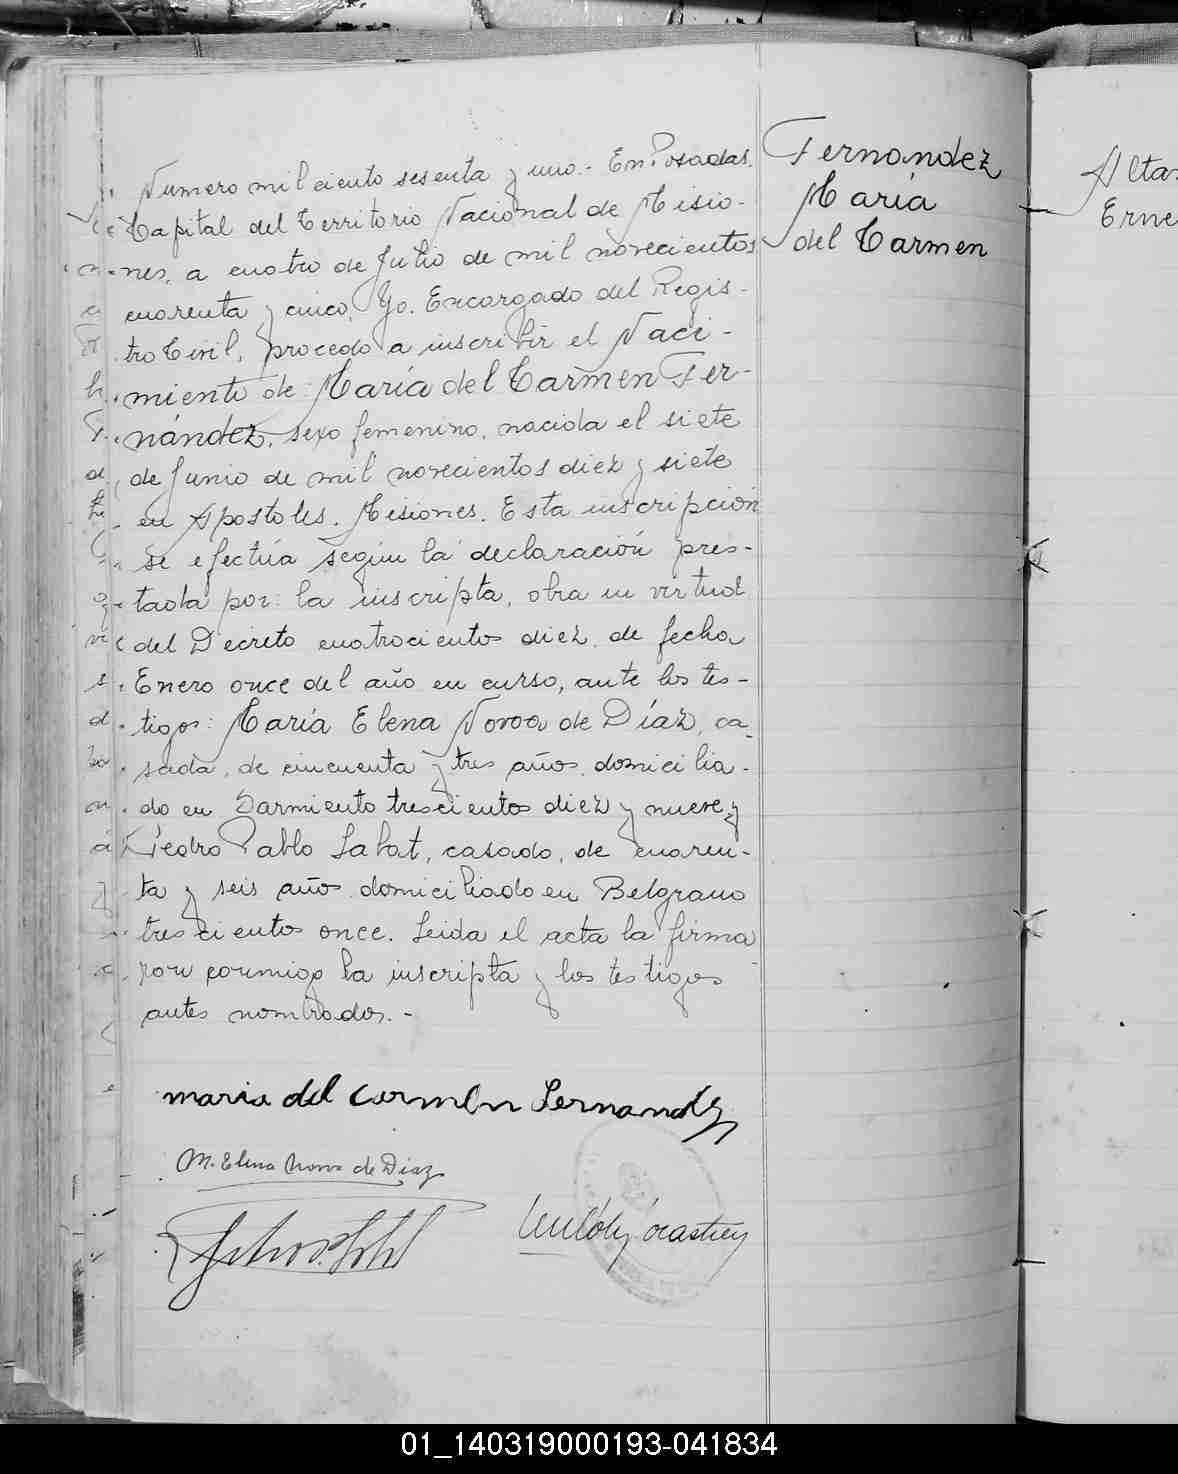 Numero mil ciento sesenta y uno.- En Posadas,
Capital del Territorio Nacional de Misio-
nes, a cuatro de Julio de mil novecientos
cuarenta y cinco, Yo. Encargado del Regis-
tro Civil, procedo a inscribir el Naci-
miento de: María del Carmen Fer-
nández, sexo femenino, nacida el siete
de Junio de mil novecientos diez y siete
en Apostoles, Misiones. Esta inscripción
se efectúa según la declaración pres-
tada por: la inscripta, obra en virtud
del Decreto cuatrocientos diez, de fecha
Enero once del año en curso, ante los tes-
tigos: María Elena Novoa de Díaz, ca-
sada, de cincuenta y tres años, domicilia-
do en Sarmiento trescientos diez y nueve y
Pedro Pablo Labat, casado, de cuaren-
ta y seis años domiciliado en Belgrano
trescientos once. Leida el acta la firma
con conmigo la inscripta y los testigos
antes nombrados.-
Fernandez
María
del Carmen
maria del Carmen Fernandez
M. Elena Novoa de Diaz
Alta
Erne
01_140319000193-041834